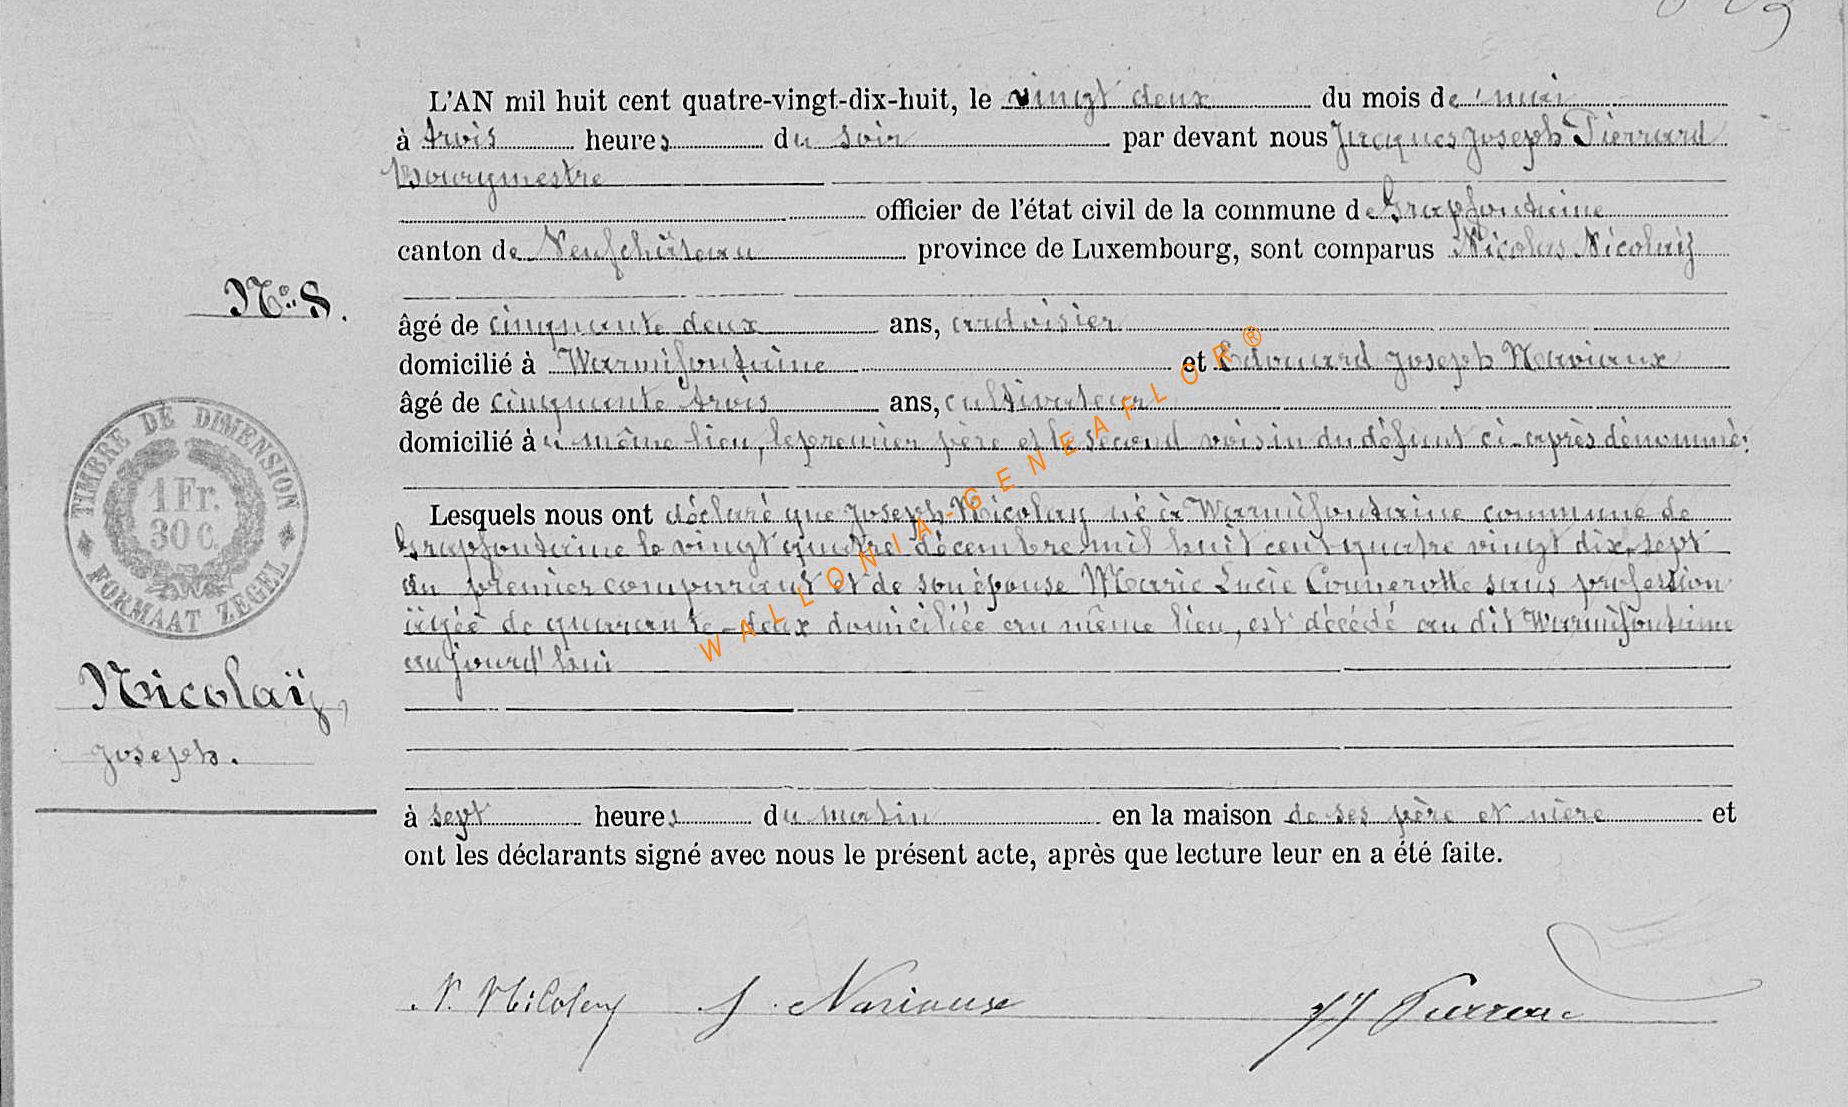 L'AN mil huit cent quatre-vingt-dix-huit, le vingt deux du mois de mai
à trois heures du soir par devant nous Jacques Joseph Pierrard
Bourgmestre
officier de l'état civil de la commune de Grapfontaine
canton de Neufchâteau province de Luxembourg, sont comparus Nicolas Nicolaÿ
N° 8.
âgé de cinquante deux ans, ardoisier
domicilié à Warmifontaine et Edouard Joseph Naviaux
âgé de cinquante trois ans, cultivateur
domicilié à u même lieu, le premier père et le second voisin du défunt ci-après dénommé:
TIMBRE DE DIMENSION
1 Fr.
30 C.
FORMAAT ZEGEL
Lesquels nous ont déclaré que Joseph Nicolay né à Warmifontaine commune de
Grapfontaine le vingt quatre décembre mil huit cent quatre vingt dix-sept
du premier comparant et de son épouse Marie Lucie Connerotte sans profession
âgée de quarante-deux domiciliée au même lieu, est décédé au dit Warmifontaine
aujourd'hui
Nicolaÿ,
Joseph.
à sept heures du matin en la maison de ses père et mère et
ont les déclarants signé avec nous le présent acte, après que lecture leur en a été faite.
N. Nicolay J. Naviaux JJ Pierrard
WALLONIA-GENEAFLOR®